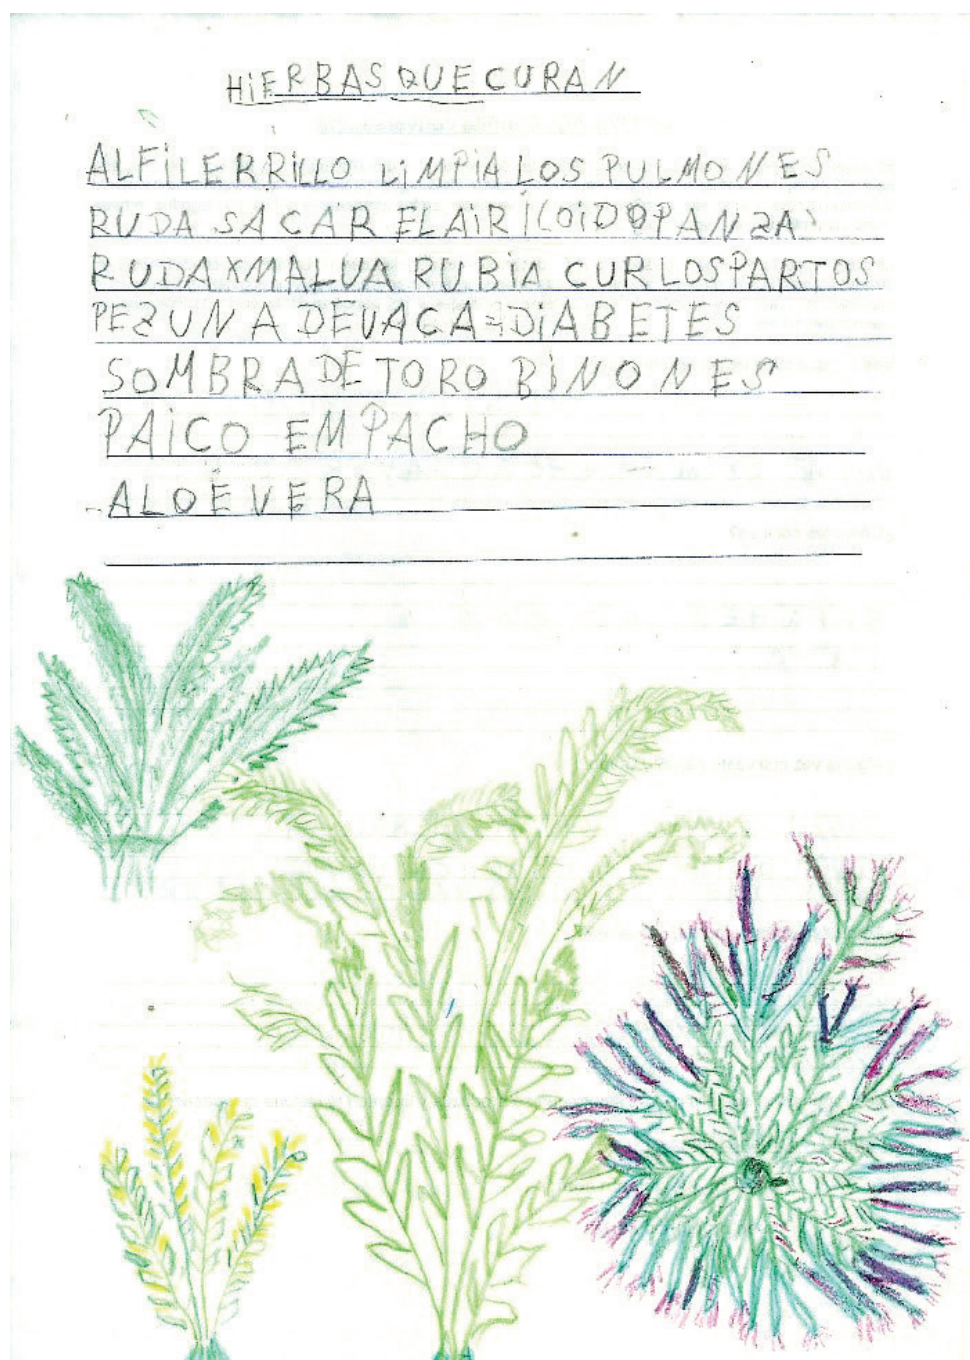 HiERBAS QUE CURAN
ALFiLERRiLLO LiMPiA LOS PULMONES
RUDA SACAR EL AiRi(OiDO PANZA)
RUDA X MALUA RUBiA CUR LOS PARTOS
PEZUNA DE VACA = DiABETES
SOMBRA DE TORO BiNONES
PAiCO EMPACHO
ALOE VERA